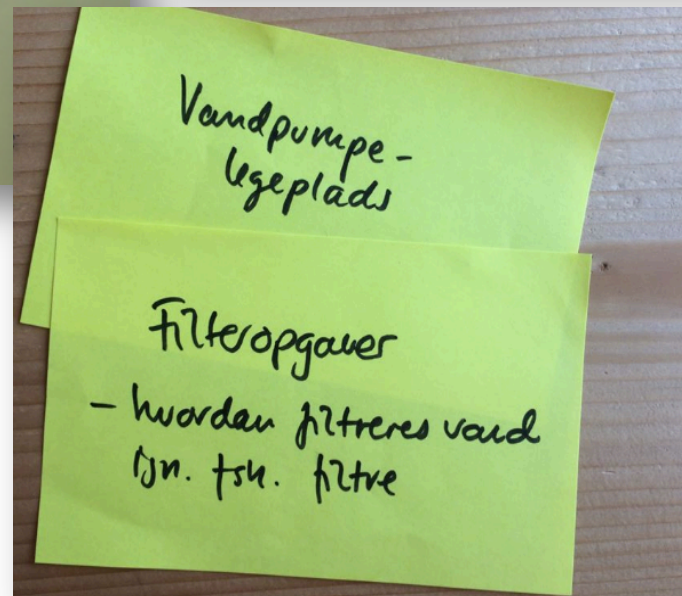 Vandpumpe-
legeplads
Filteropgaver
- hvordan filtreres vand
gn. fsk. filtre